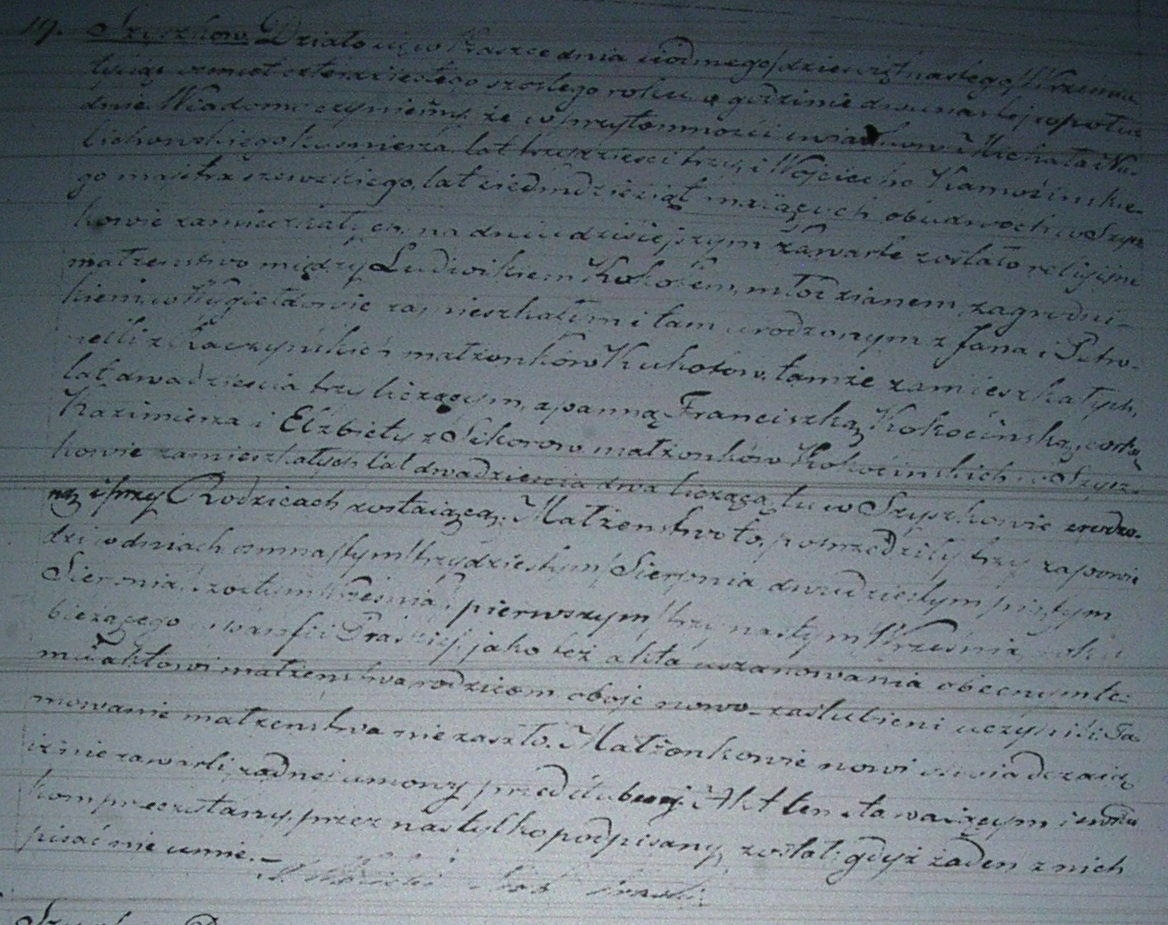 19. Szyszków Działo się w Praszce dnia siódmego/dziewiętnastego/Września
tysiąc osmset czterdziestego szóstego roku, o godzinie dwunastej w połu-
dnie. Wiadomo czyniemy, że w przytomności świadków Michała No-
lichowskiego kusnierza, lat trzydzieści trzy, i Wojciecha Kamozińskie-
go majstra szewckiego, lat siedmdziesiąt mających obudwoch w Szysz-
kowie zamieszkałych, na dniu dzisiejszym zawarte zostało religijne
małżenstwo między Ludwikiem Kokotem, młodzianem, zagrodni-
kiem, w Wygiełdowie zamieszkałym i tam urodzonym z Jana i Petro-
nelli z Kaczyńskich małżonków Kukotów, tamże zamieszkałych,
lat dwadzieścia trzy liczącym, a panną Franciszką Kokocińską, córką
Kazimierza i Elżbiety z Sikorow małżonków Kokocinskich w Szysz-
kowie zamieszkałych lat dwadzieścia dwa liczącą, tu w Szyszkowie urodzo-
ną i przy Rodzicach zostającą. Małżenstwo to poprzedziły trzy zapowie
dzi w dniach osmnastym/trzydziestym/Sierpnia dwudziestym piątym
Sierpnia/szóstym Września, i pierwszym/trzynastym/Września, roku
bieżącego w parafii Praszki, jako też akta uszanowania obecnym te-
mu aktowi małżenstwa rodzicom oboje nowo-zaślubieni uczynili Ta-
mowanie małżenstwa nie zaszło. Małżonkowie nowi oświadczają
iż nie zawarli żadnej umowy przedślubnej. Akt ten stawającym i świad-
kom przeczytany, przez nas tylko podpisany został, gdyż żaden z nich
pisać nie umie.-